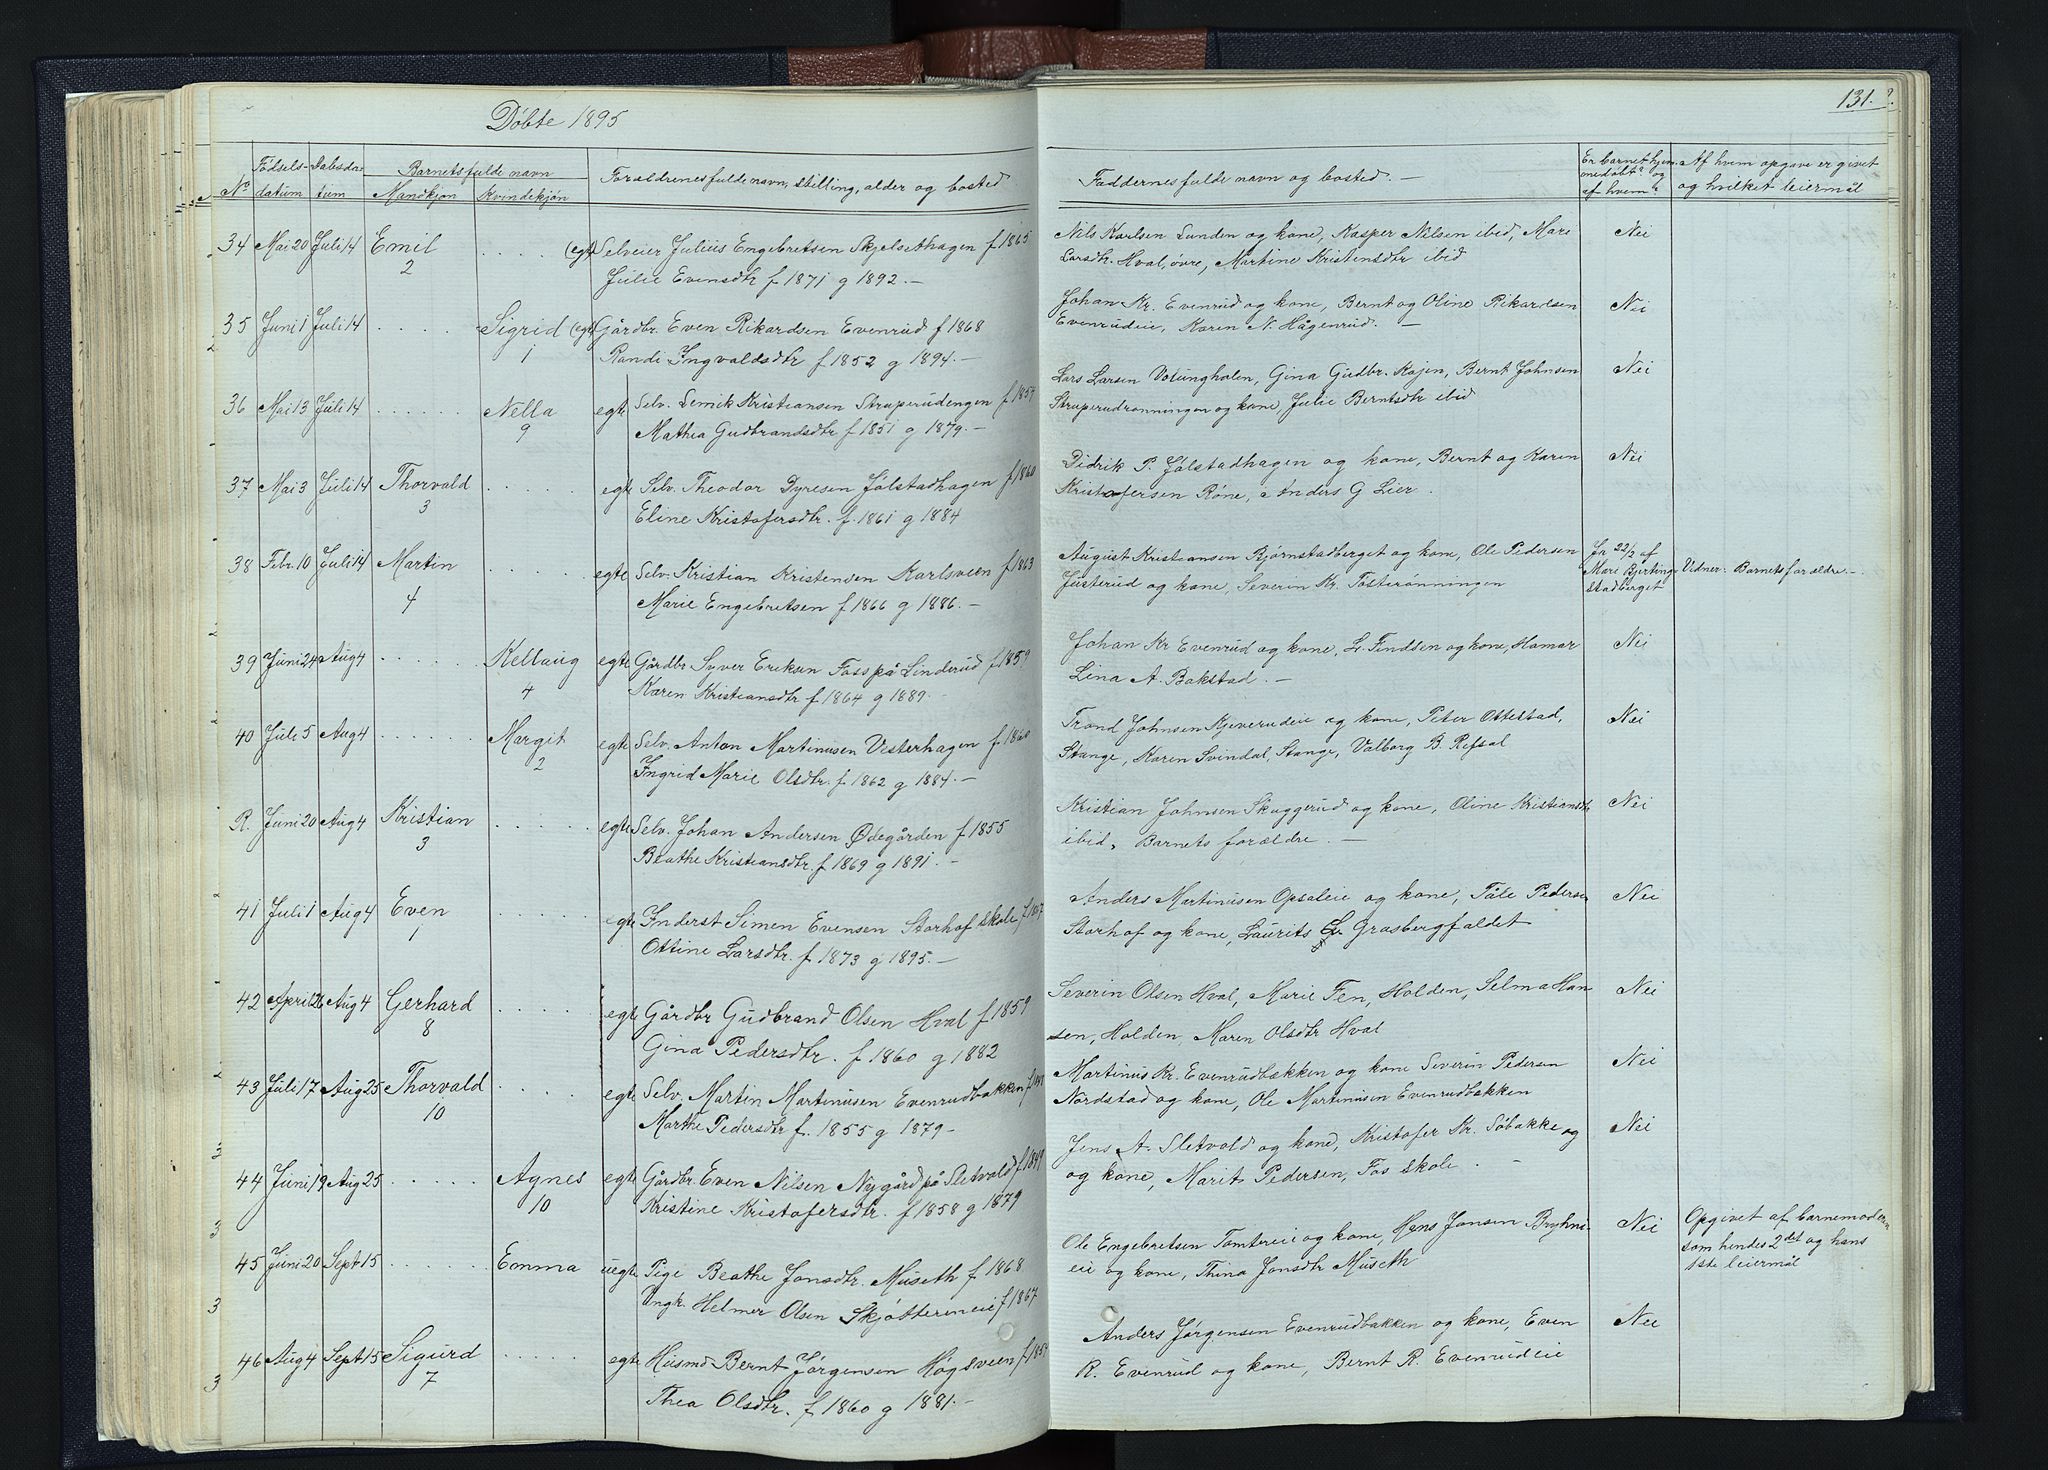 Døbte 1895
131.
No
Fødsels-
datum
Dabsda-
tum
Barnets fulde navn
Mandkjøn
Kvindekjøn
Forældrenes fulde navn, stilling, alder og bosted
Faddernes fulde navn og bosted. —
Er barnet hjem-
medøbt? og
af hvem?
Af hvem opgave er givet
og hvilket leiermål
34 Mai 20 Juli 14 Emil (egte Selveier Julius Engebretsen Skjelsethagen f 1865
2 Julie Evensdtr f 1871 g 1892. —
Nils Karlsen Lunden og kone, Kasper Nilsen ibid, Mari
Larsdtr. Hval, øvre, Martine Kristensdtr ibid
Nei
35 Juni 1 Juli 14 Sigrid (egte Gårdbr. Even Rikardsen Evenrud f 1868
1 Randi Ingvaldsdtr f 1852 g 1894. —
Johan Kr. Evenrud og kone, Bernt og Oline Rikardsen
Evenrudeie, Karen N. Hågenrud. —
Nei
36 Mai 13 Juli 14 Nella egte Selv. Lemik Kristiansen Struperudengen f 1854
9 Mathea Gudbrandsdtr f 1851 g 1879. —
Lars Larsen Volungholen, Gina Gudbr. Kajen, Bernt Johnsen
Struperudrønningen og kone, Julie Berntsdtr ibid
Nei
37 Mai 3 Juli 14 Thorvald egte Selv. Theodor Dyresen Jølstadhagen f 1860
3 Eline Kristofersdtr. f. 1861 g 1884
Didrik P. Jølstadhagen og kone, Bernt og Karen
Kristofersen Røne, Anders G Lier.
Nei
38 Febr. 10 Juli 14 Martin egte Selv. Kristian Kristensen Karlsveen f 1863
4 Marie Engebretsen f 1866 g 1886. —
August Kristiansen Bjørnstadberget og kone, Ole Pedersen
Justerud og kone, Severin Kr. Fosterønningen
Ja 22/2 af
Mari Bjerting-
stadberget
Vidner: Barnets forældre. —
39 Juni 24 Aug 4 Kellaug egte Gårdbr Syver Eriksen Foss på Linderud f 1859
4 Karen Kristiansdtr f 1864 g 1889. —
Johan Kr Evenrud og kone, L. Findsen og kone, Hamar
Lina A. Bakstad. —
Nei
40 Juli 5 Aug 4 Margit egte Selv. Anton Martinusen Vesterhagen f. 1860
2 Ingrid Marie Olsdtr. f. 1862 g 1884. —
Trond Johnsen Kjeverudeie og kone, Peter Ottestad,
Stange, Karen Svindal, Stange, Valborg B. Refsal
Nei
R. Juni 20 Aug 4 Kristian egte Selv. Johan Andersen Ødegården f 1855
3 Beathe Kristiansdtr. f 1869 g 1891. —
Kristian Johnsen Skaggerud og kone, Oline Kristiansdtr
ibid, Barnets forældre. —
Nei
41 Juli 1 Aug 4 Even egte Inderst Simen Evensen Storhof skole f 1867
1 Ottine Larsdtr. f 1873 g 1895. —
Anders Martinusen Opsaleie og kone, Påle Pedersen
Storhof og kone, Laurits Grasbergfaldet
Nei
42 April 26 Aug 4 Gerhard egte Gårdbr Gudbrand Olsen Hval f 1859
8 Gina Pedersdtr. f 1860 g 1882
Severin Olsen Hval, Marie Fen, Holden, Selma Han
sen, Holden, Maren Olsdtr Hval
Nei
43 Juli 17 Aug 25 Thorvald egte Selv. Martin Martinusen Evenrudbakken
10 Marthe Pedersdtr f. 1855 g 1879 —
Martinus Kr. Evenrudbakken og kone Severin Pedersen
Nordstad og kone, Ole Martinusen Evenrudbakken
Nei
44 Juni 19 Aug 25 Agnes egte Gårdbr. Even Nilsen Nygård på Sletvold f 1849
10 Kristine Kristofersdtr. f 1858 g 1879
Jens A. Sletvold og kone, Kristofer Kr. Søbakke og
og kone, Marit Pedersen, Fos skole. —
Nei
45 Juni 20 Sept 15 Emma uegte Pige Beathe Jonsdtr. Museth f 1868
Ungk. Helmer Olsen Skjøttereneie f 1867
Ole Engebretsen Tomtereie og kone, Hans Jonsen Bryhns-
eie og kone, Thina Jonsdtr Museth
Nei
Opgivet af barnemoderen
som hendes 2det og hans
1ste leiermål
46 Aug 4 Sept 15 Sigurd egte Husmd Bernt Jørgensen Høgsveen
7 Thea Olsdtr. f 1860 g 1881. —
Anders Jørgensen Evenrudbakken og kone, Even
R. Evenrud og kone, Bernt R. Evenrudeie
Nei